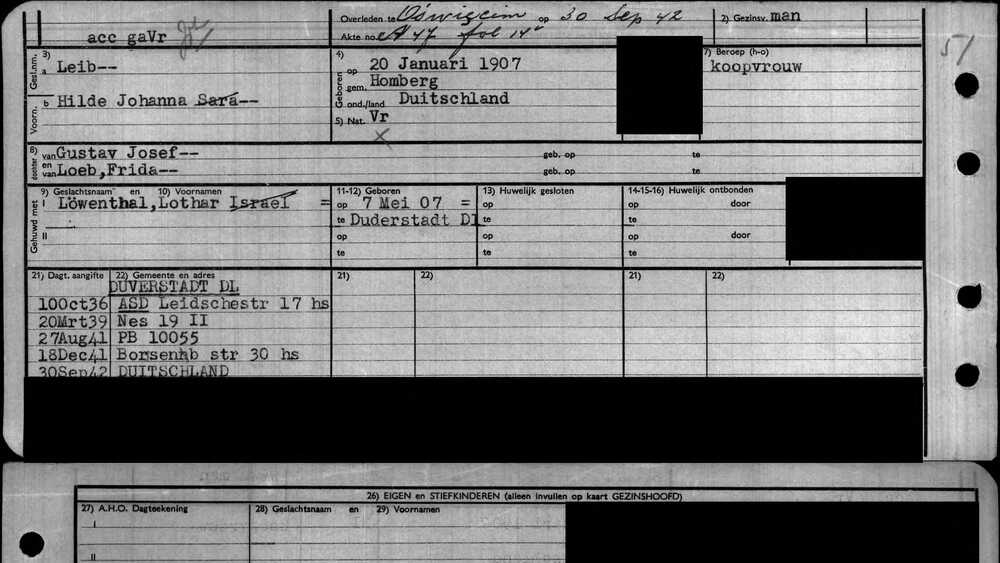 Overleden te Oświęcim op 30 Sep 42
2) Gezinsv. man
acc gaVr
Akte no. A 47 fol 14
51
Gesl.nm.
3)
a Leib--
4)
Geboren
op 20 Januari 1907
7) Beroep (h-o)
koopvrouw
gem. Homberg
Voorn.
b Hilde Johanna Sara--
ond./land Duitschland
5) Nat. Vr
8)
dochter
van Gustav Josef--
geb. op te
en
van Loeb,Frida--
geb. op te
Gehuwd met
9) Geslachtsnaam en 10) Voornamen
11-12) Geboren
13) Huwelijk gesloten
14-15-16) Huwelijk ontbonden
I Löwenthal,Lothar Israel =
op 7 Mei 07 =
op
op door
te Duderstadt Dl
te
te
II
op
op
op door
te
te
te
21) Dagt. aangifte
22) Gemeente en adres
21)
22)
21)
22)
DUVERSTADT DL
10Oct36 ASD Leidschestr 17 hs
20Mrt39 Nes 19 II
27Aug41 PB 10055
18Dec41 Borsenhb str 30 hs
30Sep42 DUITSCHLAND
26) EIGEN en STIEFKINDEREN (alleen invullen op kaart GEZINSHOOFD)
27) A.H.O. Dagteekening
28) Geslachtsnaam en 29) Voornamen
I
II